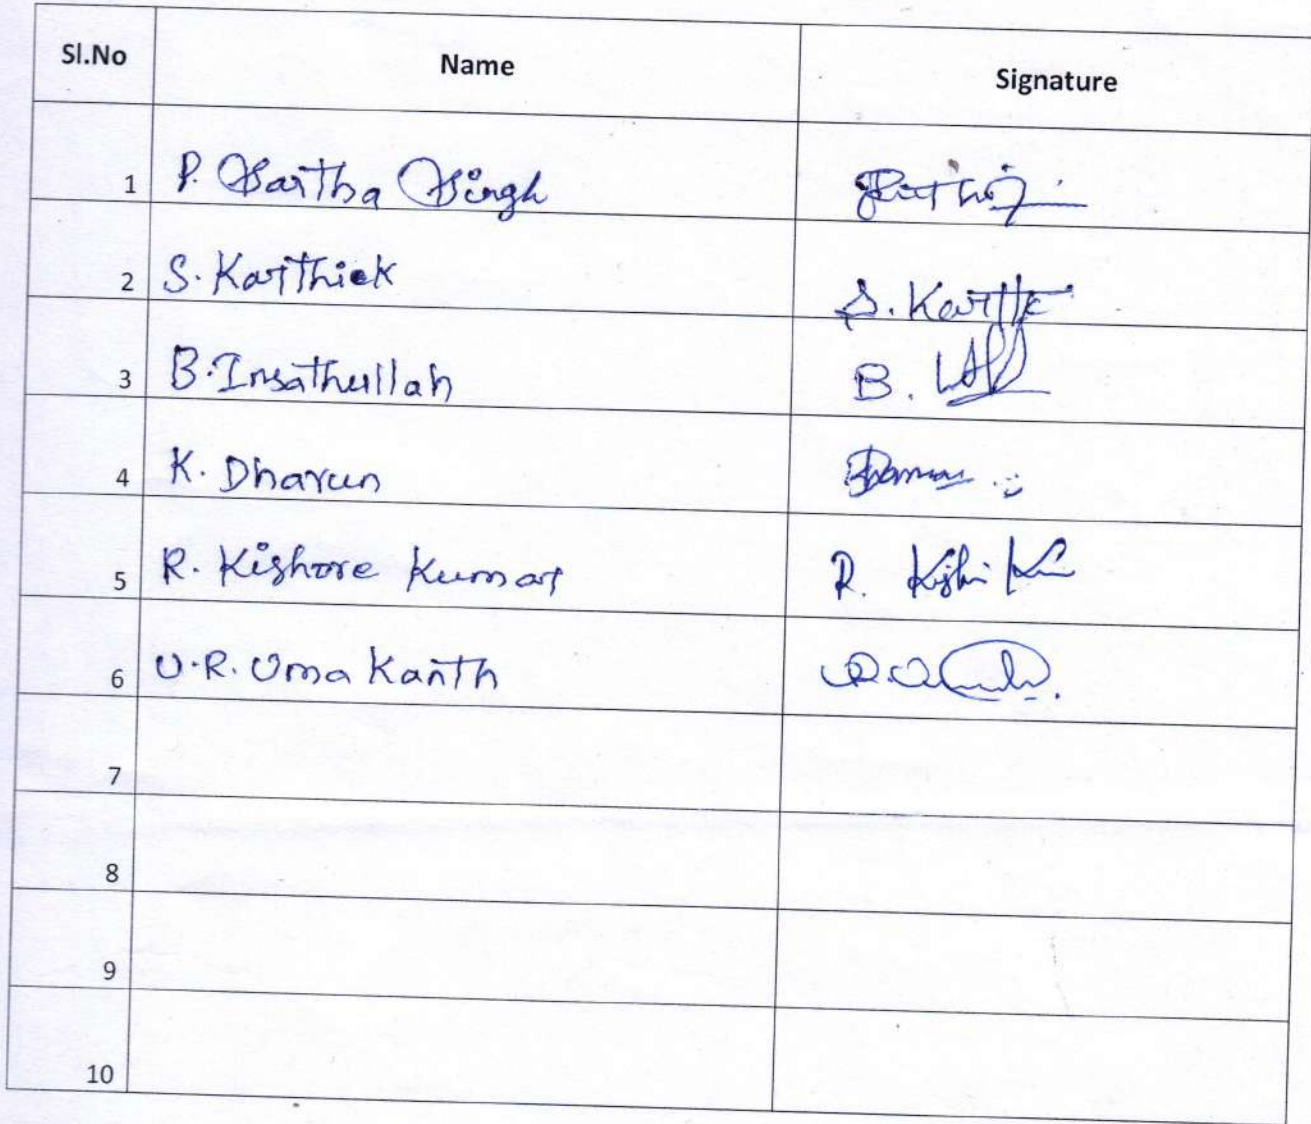 Sl.No Name Signature
1 P. Sartha Singh
2 S. Karthick S. Karthk
3 B. Insathullah B.
4 K. Dharun
5 R. Kishore Kumar R.
6 U.R. Uma Kanth
7
8
9
10